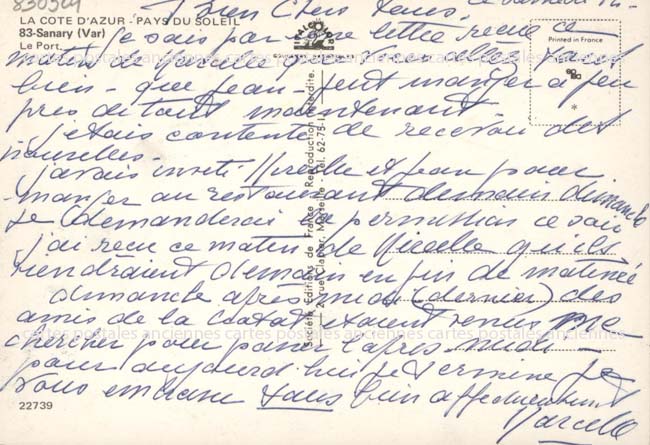 830524
LA COTE D'AZUR - PAYS DU SOLEIL
83-Sanary (Var)
Le Port.
Bien Chers tous. ce samedi m-
Je sais par une lettre reçue ce
matin de
bien - que Jean - peut manger à peu
près de tout maintenant
J'étais contente de recevoir des
nouvelles.
J'avais invité Mireille et Jean pour
manger au restaurant demain dimanche
je demanderai la permission ce soir
j'ai reçu ce matin de qu'ils
viendraient demain en fin de matinée
dimanche après midi (dernier) des
amis de la Ciotat étaient venus me
chercher pour passer l'après-midi -
pour aujourd'hui je termine je
vous embrasse tous bien affectueusement
Marcelle
22739
Printed in France
Société Editions de France - Reproduction interdite.
2, rue Clapier, Marseille - Tél. 62-75-
cartes postales anciennes cartes postales anciennes
cartes postales anciennes cartes postales anciennes cartes postales